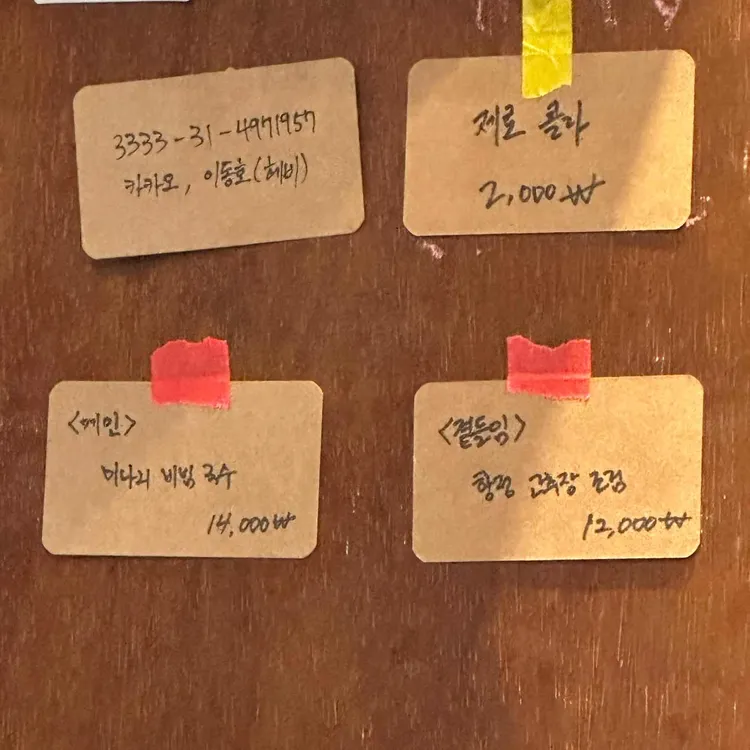 3333-31-4971957
카카오, 이동호(헤비)
제로 콜라
2,000₩
<메인>
미나리 비빔 국수
14,000₩
<곁들임>
항정 고추장 조림
12,000₩